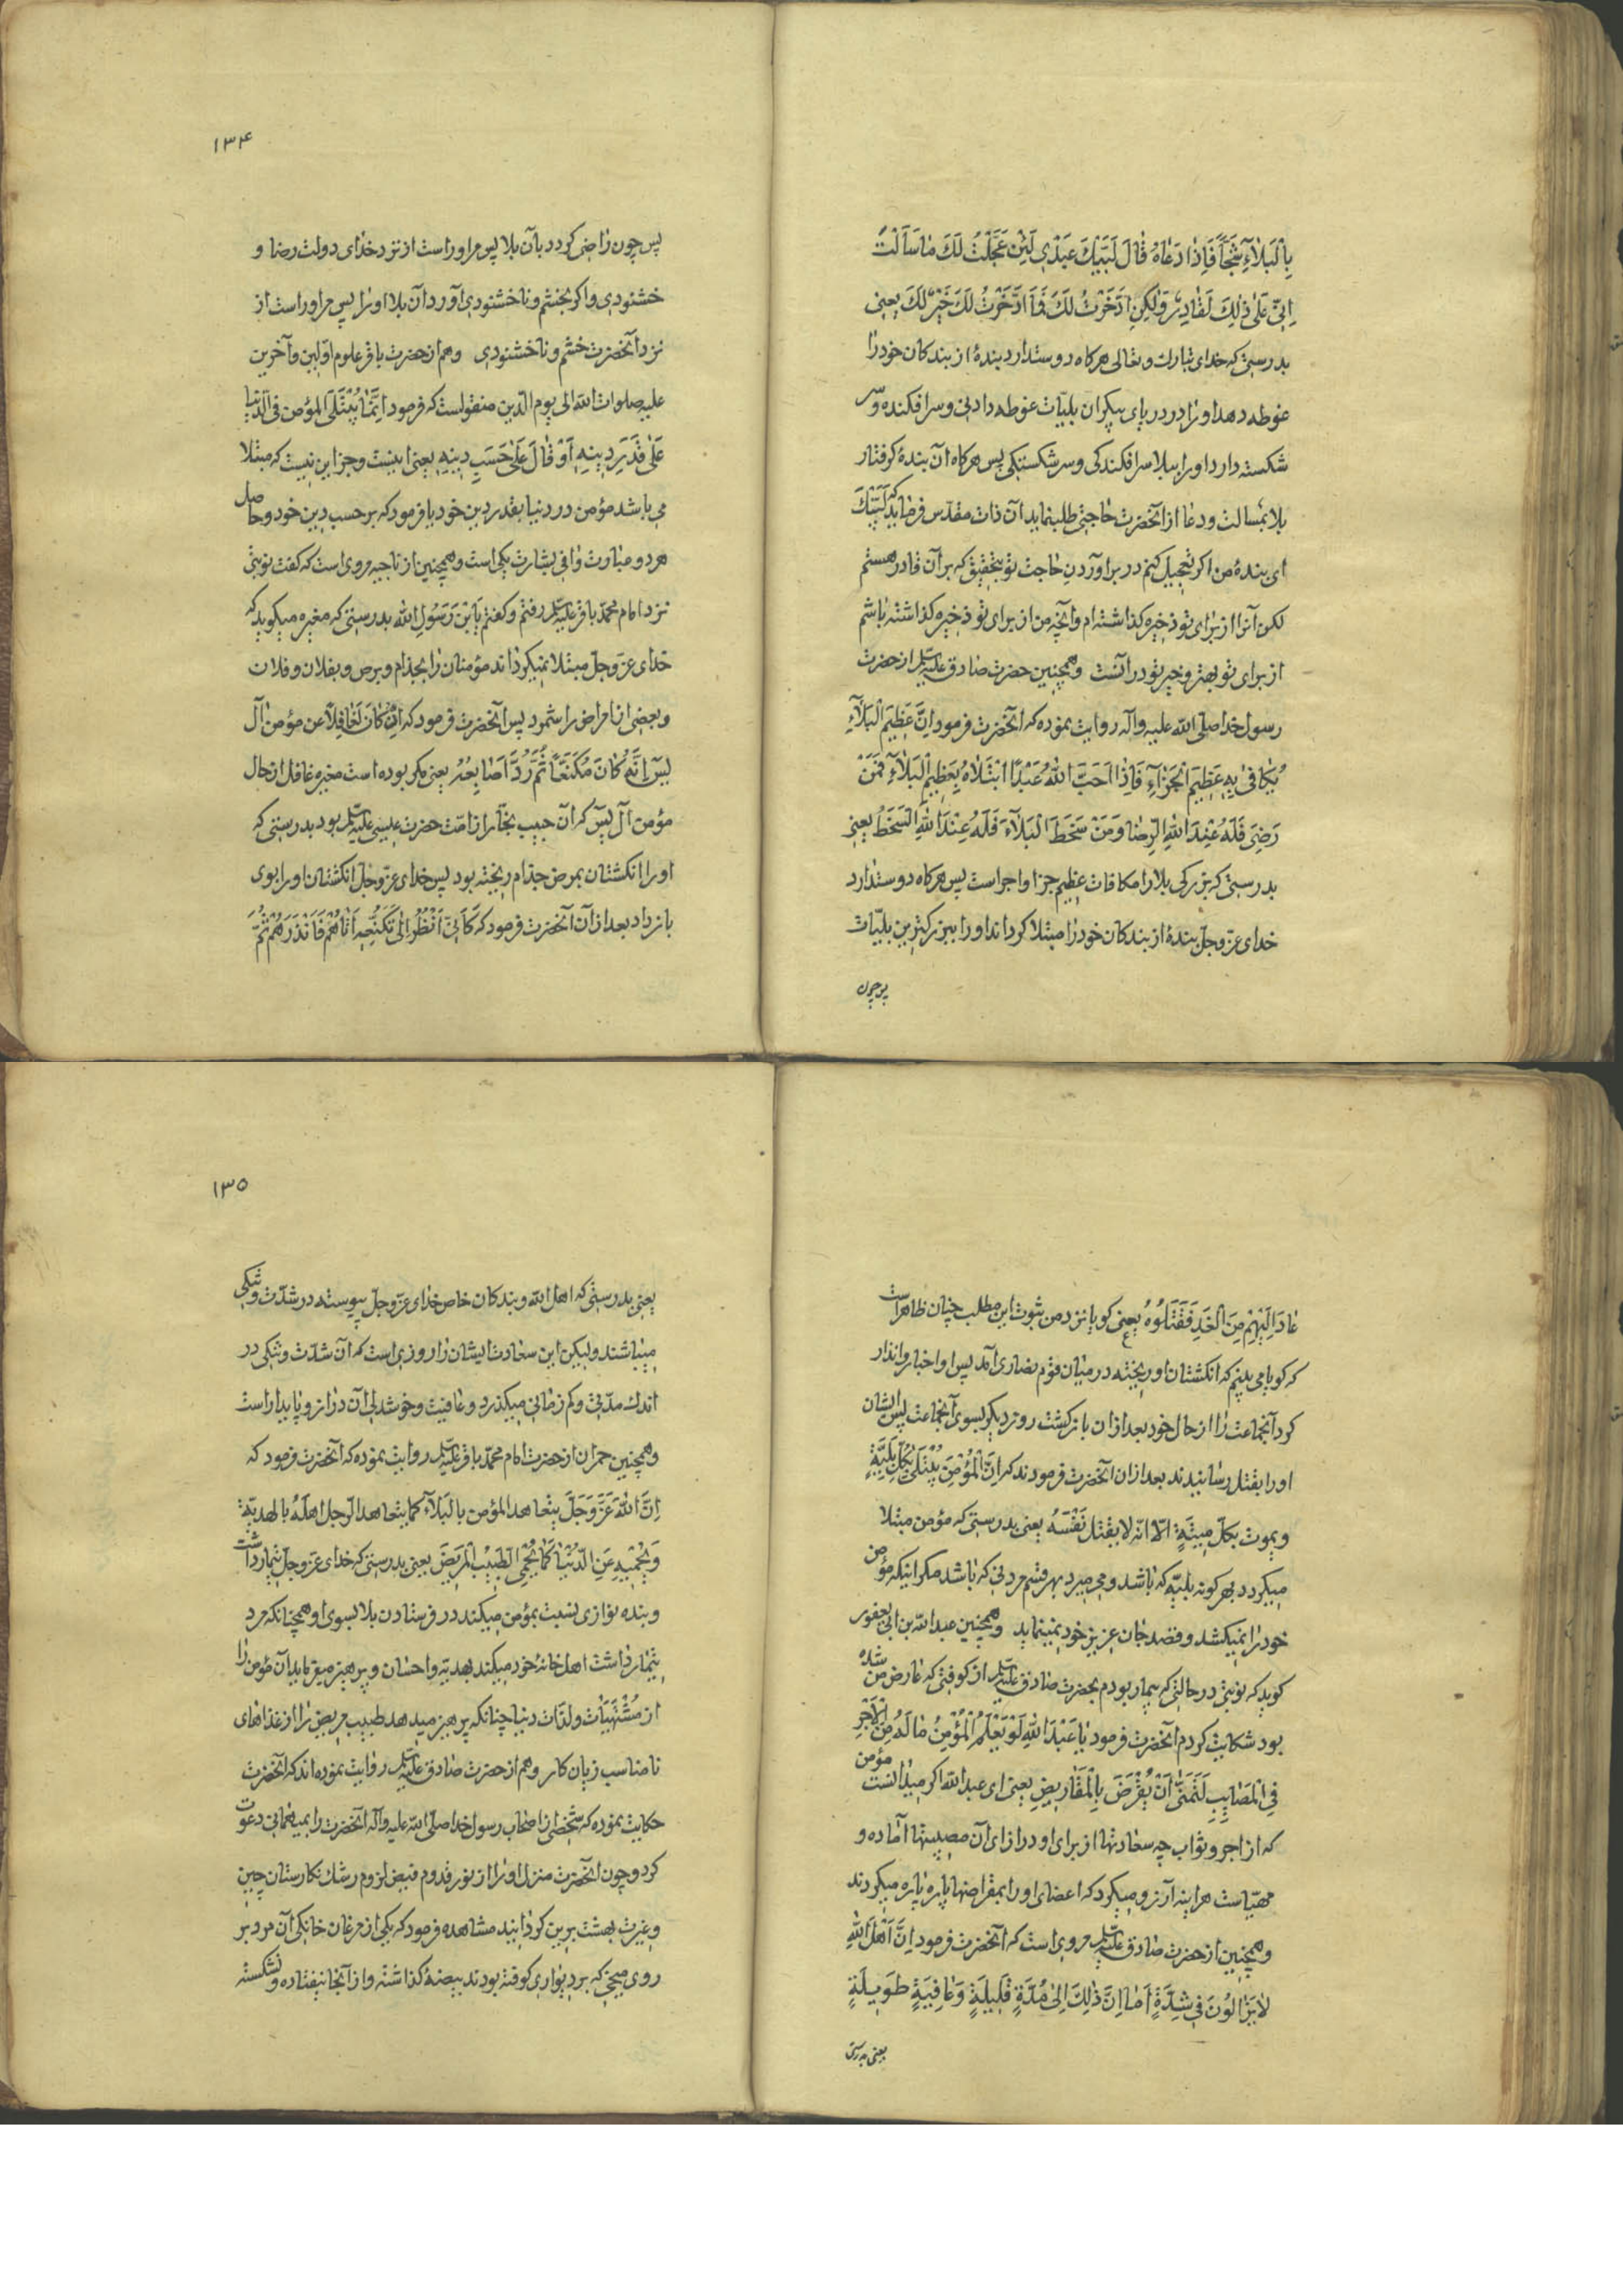 بِالْبَلٰاۤءِ ثَجًّاً فَاِذٰا دَعٰاهُ قٰالَ لَبَّيْكَ عَبْدٖي لَئِنْ عَجَّلْتُ لَكَ مٰا سَاَلْتَ
اِنّٖي عَلٰى ذٰلِكَ لَقٰادِرٌ وَلٰكِنِ ادَّخَرْتُ لَكَ فَمَا ادَّخَرْتُ لَكَ خَيْرٌ لَكَ يعنى
بدرستى كه خداى تبارك و تعالى هركاه دوستدارد بندۀ از بندكان خود را
غوطه دهد او را در درياى بيكران بليّات غوطه دادنى و سرافكنده و سر
شكسته دارد او را ببلا سرافكندكى و سرشكستكى پس هركاه آن بندۀ كرفتار
بلا بمسالت و دعا از آنحضرت حاجتى طلبنمايد آن ذات مقدّس فرمايد كه لَبَّيْكَ
اى بندۀ من اكر تعجيل كنم در براوردن حاجت تو بتحقيق كه بر آن قادر هستم
لكن آنرا از براى تو ذخيره كذاشته‌ام و آنچه من از براى تو ذخيره كذاشته باشم
از براى تو بهتر و خير تو در آنست و همچنين حضرت صادق عليه السلم از حضرت
رسول خدا صلى الله عليه و اله روايت نموده كه آنحضرت فرمود اِنَّ عَظِيمَ الْبَلٰاۤءِ
يُكٰافىٰ بِهٖ عَظِيمُ الْجَزٰاۤءِ فَاِذٰا اَحَبَّ اللّٰهُ عَبْدًا ابْتَلٰاهُ بِعَظِيمِ الْبَلٰاۤءِ فَمَنْ
رَضِيَ فَلَهُ عِنْدَ اللّٰهِ الرِّضٰا وَمَنْ سَخِطَ الْبَلٰاۤءَ فَلَهُ عِنْدَ اللّٰهِ السَّخَطُ يعنى
بدرستى كه بزركى بلا را مكافات عظيم جزا و اجر است پس هركاه دوستدارد
خداى عزّ و جلّ بندۀ از بندكان خود را مبتلا كرداند او را ببزركترين بليّات
پس چون
۱۳۴
پس چون راضى كردد بآن بلا پس مر او راست از نزد خداى دولت رضا و
خشنودى و اكر بخشم و ناخشنودى آورد آن بلا او را پس مر او راست از
نزد آنحضرت خشم و ناخشنودى و هم از حضرت باقر علوم اوّلين و آخرين
عليه صلوات الله الى يوم الدّين منقولست كه فرمود اِنَّمٰا يُبْتَلَى المؤمن فى الدّنيا
عَلٰى قَدَرِ دِينِهِ اَوْ قٰالَ عَلٰى حَسَبِ دِينِهِ يعنى اينست و جز اين نيست كه مبتلا
مى باشد مؤمن در دنيا بقدر دين خود يا فرمود كه بر حسب دين خود و حاصل
هر دو عبارت وافى بشارت يكى است و همچنين از ناجيه مروى است كه كفت نوبتى
نزد امام محمّد باقر عليه السلم رفتم و كفتم يَابْنَ رَسُولِ اللّٰه بدرستى كه مغيره ميكويد كه
خداى عزّ و جلّ مبتلا نميكرداند مؤمنان را بجذام و برص و بفلان و فلان
و بعضى از امراض را شمود پس آنحضرت فرمود كه اِنْ كٰانَ لَغٰافِلاً عن مؤمن آل
يٰس اِنَّهُ كٰانَ مُكَنَّعًا ثُمَّ رَدَّ اَصٰابِعُهُ يعنى مكر بوده است مغيره غافل از حال
مؤمن آل يس كه آن حبيب نجّار از امّت حضرت عيسى عليه السلم بود بدرستى كه
او را انكشتان بمرض جذام ريخته بود پس خداى عزّ و جلّ انكشتان او را بوى
باز داد بعد از آن آنحضرت فرمود كه كَاَنّٖي اَنْظُرُ اِلٰى تَكْنٖيعِهٖ اَتٰاهُمْ فَاَنْذَرَهُمْ ثُمَّ
عٰادَ اِلَيْهِمْ مِنَ الْغَدِ فَقَتَلُوهُ يعنى كويا نزد من ثبوت اين مطلب چنان ظاهر است
كه كويا مى بينم كه انكشتان او ريخته در ميان قوم نصارى آمد پس او اخبار و انذار
كرد آنجماعت را از حال خود بعد از ان بازكشت روز ديكر بسوى آنجماعت پس ايشان
او را بقتل رسانيدند بعد از ان آنحضرت فرمودند كه اِنَّ الْمُؤْمِنَ يُبْتَلىٰ بِكُلِّ بَلِيَّةٍ
و يموت بكلّ مِيتَةٍ الّا انّه لا يقتل نَفْسَهُ يعنى بدرستى كه مؤمن مبتلا
ميكردد بهر كونه بليّه كه باشد و مى ميرد بهر قسم مردنى كه باشد مكر اينكه مؤمن
خود را نميكشد و قصد جان عزيز خود نمينمايد و همچنين عبد الله بن ابى يعفور
كويد كه نوبتى در حالتى كه بيمار بودم بحضرت صادق عليه السلم از كوفتى كه عارض من شده
بود شكايت كردم آنحضرت فرمود يٰا عَبْدَ اللّٰهِ لَوْ يَعْلَمُ الْمُؤْمِنُ مٰا لَهُ مِنَ الْاَجْرِ
فِي الْمَصٰايِبِ لَتَمَنّٰى اَنْ يُقْرَضَ بِالْمَقٰاريضِ يعنى اى عبد الله اكر ميدانست مؤمن
كه از اجر و ثواب چه سعادتها از براى او در ازاى آن مصيبتها آماده و
مهيّاست هراينه آرزو ميكرد كه اعضاى او را بمقراضها پاره پاره ميكردند
و همچنين از حضرت صادق عليه السلم مروى است كه آنحضرت فرمود اِنَّ اَهْلَ اللّٰهِ
لٰا يَزٰالُونَ فِي شِدَّةٍ اَمٰا اِنَّ ذٰلِكَ اِلٰى مُدَّةٍ قَلِيلَةٍ وَعٰافِيَةٍ طَوِيلَةٍ
يعنى بدرستى
۱۳۵
يعنى بدرستى كه اهل الله و بندكان خاص خداى عزّ و جلّ پيوسته در شدّت و تنكى
ميباشند و ليكن اين سعادت ايشان را روزى است كه آن شدّت و تنكى در
اندك مدّتى و كم زمانى ميكذرد و عافيت و خوشدلى آن دراز و پايدار است
و همچنين حمران از حضرت امام محمّد باقر عليه السلم روايت نموده كه آنحضرت فرمود كه
اِنَّ اللّٰهَ عَزَّ وَجَلَّ يتعاهد المؤمن بالبَلٰاۤءِ كما يتعاهد الرّجل اهلَهُ بالهديّة
وَيَحْمِيهِ عَنِ الدُّنْيٰا كَمٰا يَحْمِي الطَّبِيْبُ الْمَرِيضَ يعنى بدرستى كه خداى عزّ و جلّ تيمار داشت
و بنده نوازى نسبت بمؤمن ميكند در فرستادن بلا بسوى او همچنانكه مرد
تيمار داشت اهل خانۀ خود ميكند بهديّه و احسان و پرهيز ميفرمايد آن مؤمن را
از مُشْتَهِيٰات و لذّات دنيا چنانكه پرهيز ميدهد طبيب مريض را از غذاهاى
نامناسب زيان كار و هم از حضرت صادق عليه السلم روايت نموده‌اند كه آنحضرت
حكايت نموده كه شخصى از اصحاب رسول خدا صلّى الله عليه و آله آنحضرت را بميهمانى دعوت
كرد و چون آنحضرت منزل او را از نور قدوم فيض لزوم رشك نكارستان چين
و غيرت بهشت برين كردانيد مشاهده فرمود كه يكى از مرغان خانكى آن مرد بر
روى ميخى كه بر ديوارى كوفته بودند بيضۀ كذاشته و از آنجا نيفتاده و نشكسته